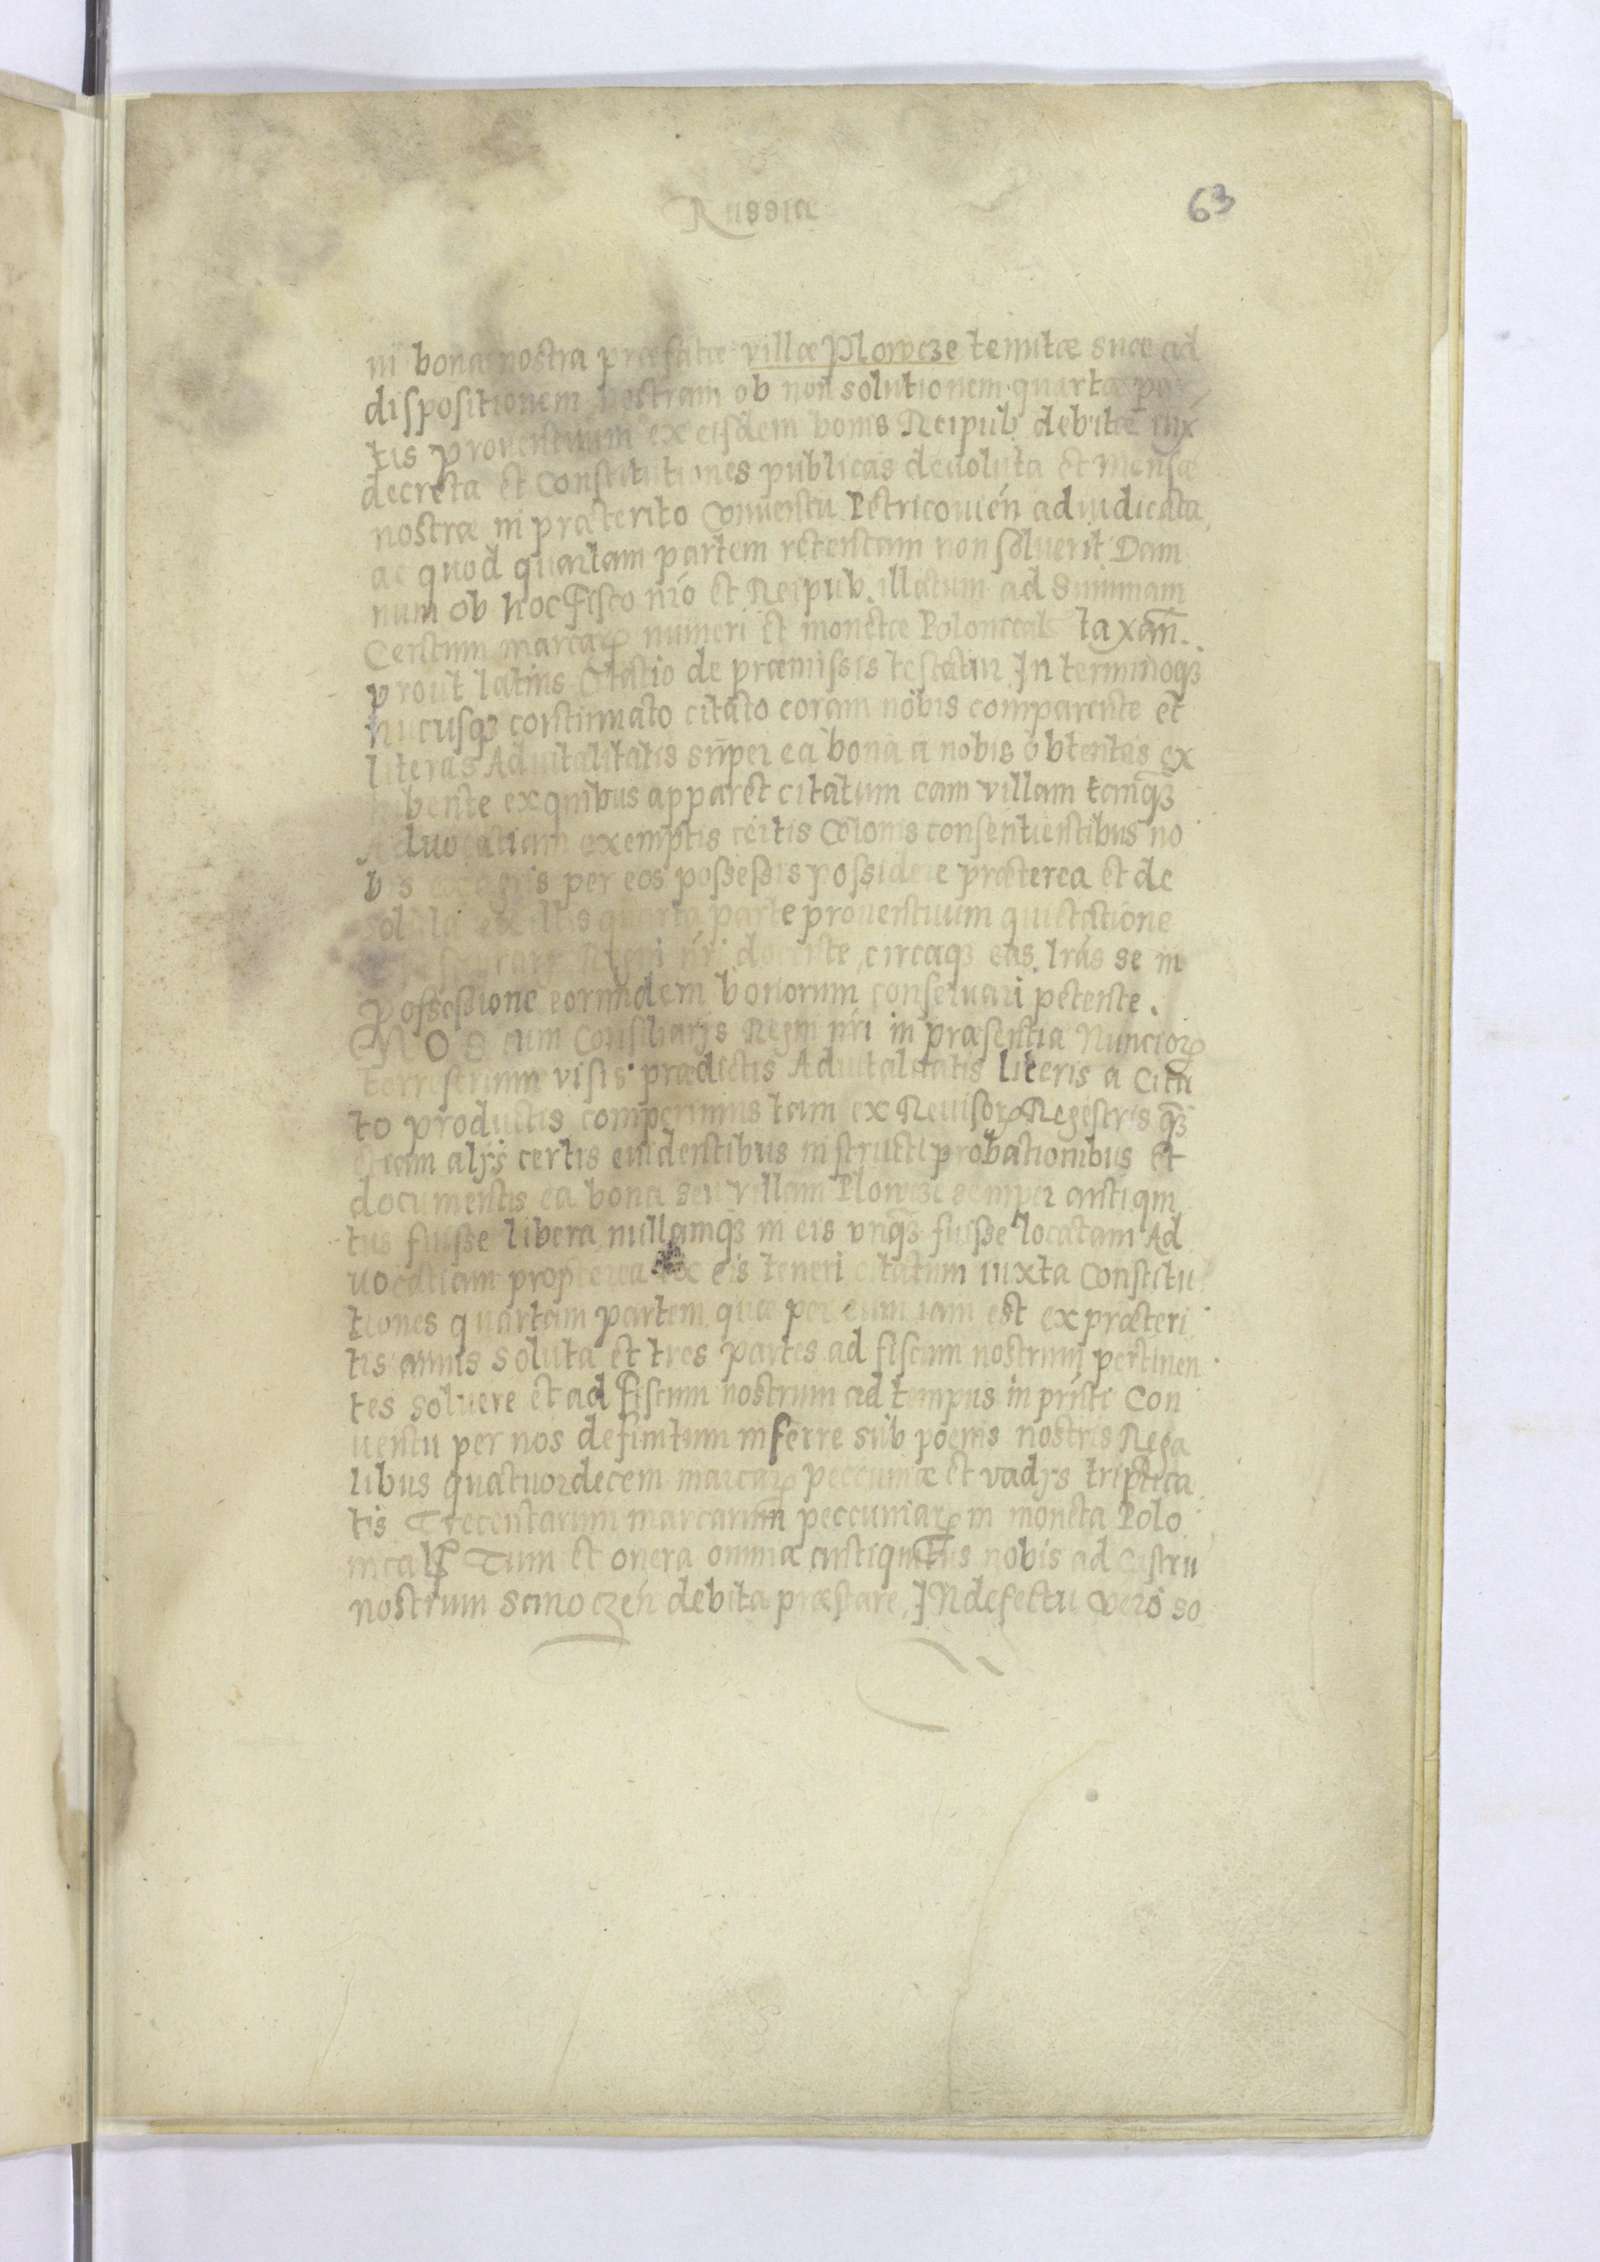 Russia
63
in bona nostra præfatæ villæ Plowcze tenutæ suæ ad
dispositionem nostram ob non solutionem quartæ par
tis prouentuum ex eisdem bonis Reipub debitæ iux
decreta et Constitutiones publicas deuoluta et Mensæ
nostræ in præterito Conuentu Petricouień adiudicata,
ac quod quartam partem retentam non soluerit Dam
num ob hoc Fisco nro et Reipub. illatum ad Summam
Centum marcarꝝ numeri et monetæ Polonicals taxam̅.
prout latius Citatio de præmissis testatur In terminoqꝫ
hucusqꝫ continuato citato coram nobis comparente et
literas Aduitalitatis super ea bona a nobis obtentas ex
hibente ex quibus apparet citatum eam villam tamqꝫ
Aduocatiam exemptis certis Colonis consentientibus no
bis per eos possessis possidere præterea et de
soluta ex illis quarta parte prouentuum quictatione
Regni nri docente, circaqꝫ eas lras se in
Possessione eorundem bonorum conseruari petente.
NOS cum Consiliarijs Regni nri in præsentia Nunciorꝝ
terrestrium visis prædictis Aduitalitatis literis a Cita
to productis comperimus tam ex Reuisorꝝ Registris qꝫ
etiam alijs certis euidentibus instructi probationibus et
documentis ea bona seu villam Plowcze semper antiqui
tus fuisse libera nullamqꝫ in eis vnqꝫ fuisse locatam Ad
uocatiam propterea ex eis teneri citatum iuxta Constitu
tiones quartam partem quæ per eum iam est ex præteri
tis annis soluta et tres partes ad fiscum nostrum pertinen
tes soluere et ad Fiscum nostrum ad tempus in prńti Con
uentu per nos definitum inferre sub poenis nostris Rega
libus quatuordecem marcarꝝ peccuniæ et vadijs triplica
tis Trecentarum marcarum peccuniarꝝ in moneta Polo
nicalj Tum et onera omnia antiquitus nobis ad Castru
nostrum Sanoczeń debita præstare, INdefectu vero so